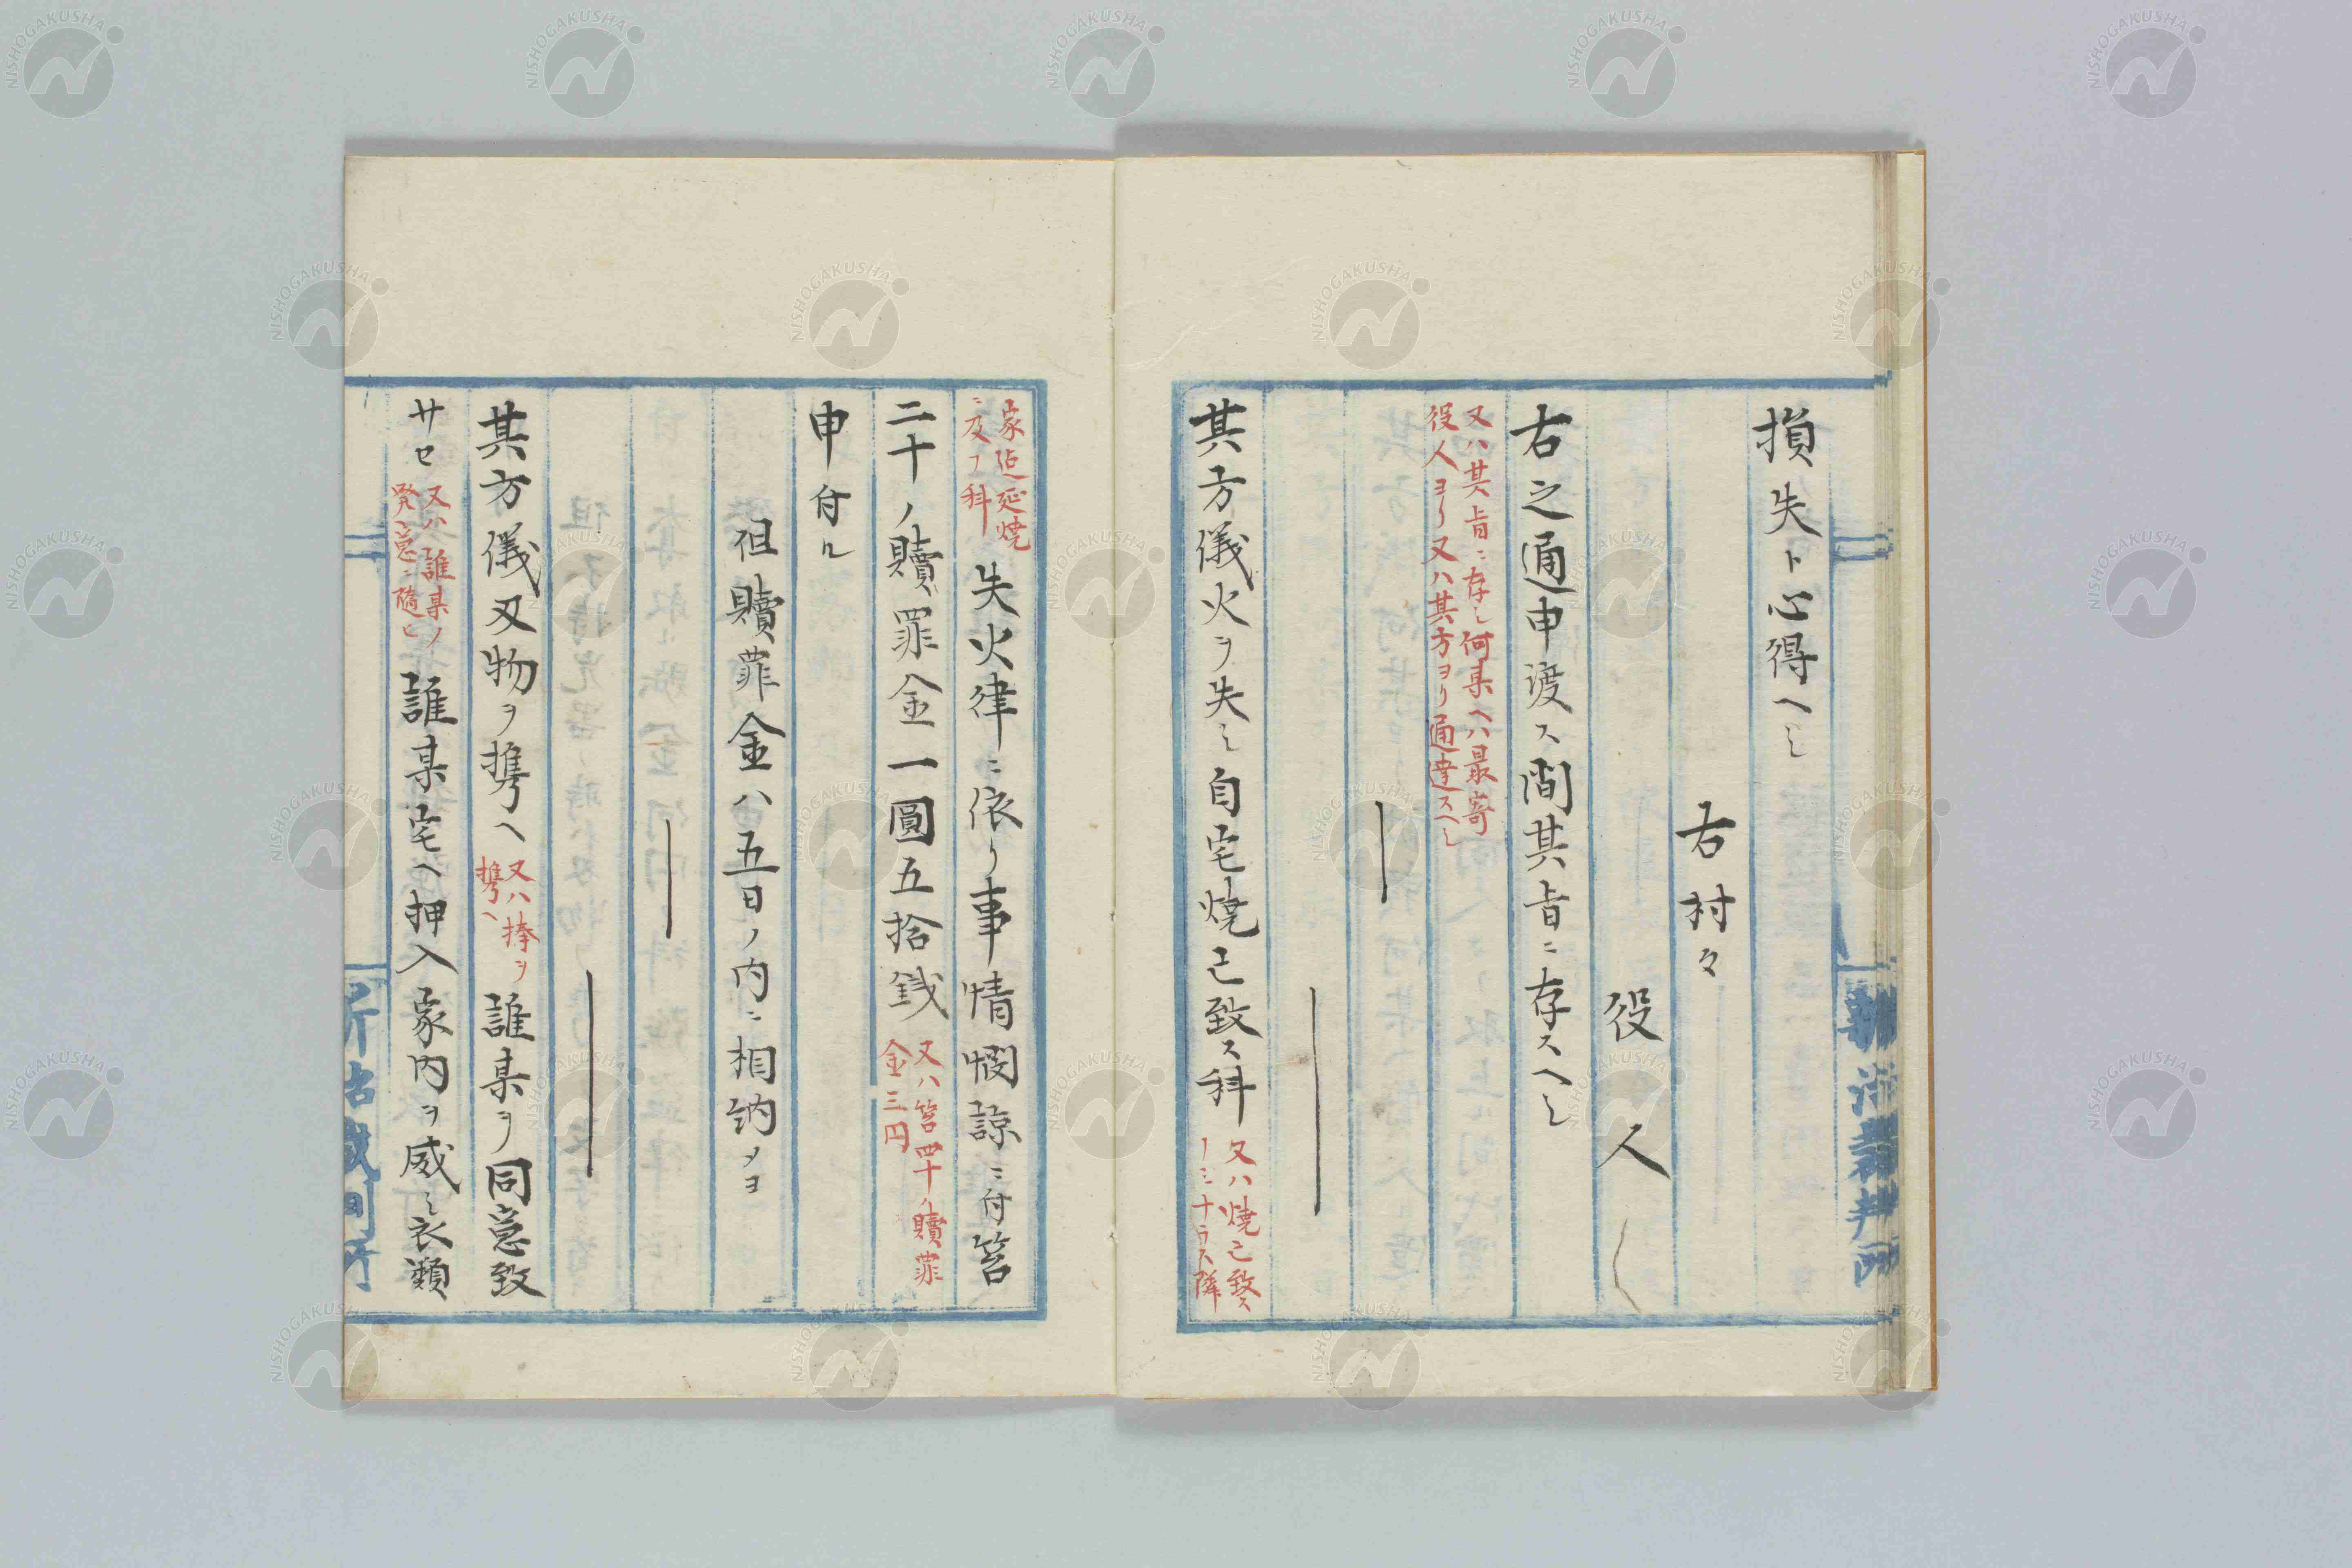 損失ト心得ヘシ
右村々
役人
右之通申渡ス間其旨ニ存スヘシ
又ハ其旨ニ存シ何某ヘハ最寄
役人ヨリ又ハ其方ヨリ通達スヘシ
其方儀火ヲ失シ自宅焼己致ス科
又ハ焼己致ス
ノミナラス隣
家迄延焼
ニ及フ科
失火律ニ依リ事情憫諒ニ付笞
二十ノ贖罪金一圓五拾銭
又ハ笞四十ノ贖罪
金三円
申付ル
但贖罪金ハ五日ノ内ニ相納メヨ
其方儀刄物ヲ携ヘ
又ハ捧ヲ
携ヘ
誰某ヲ同意致
サセ
又ハ誰某ノ
発意ニ随ヒ
誰某宅ヘ押入家内ヲ威シ衣類
NISHOGAKUSHA